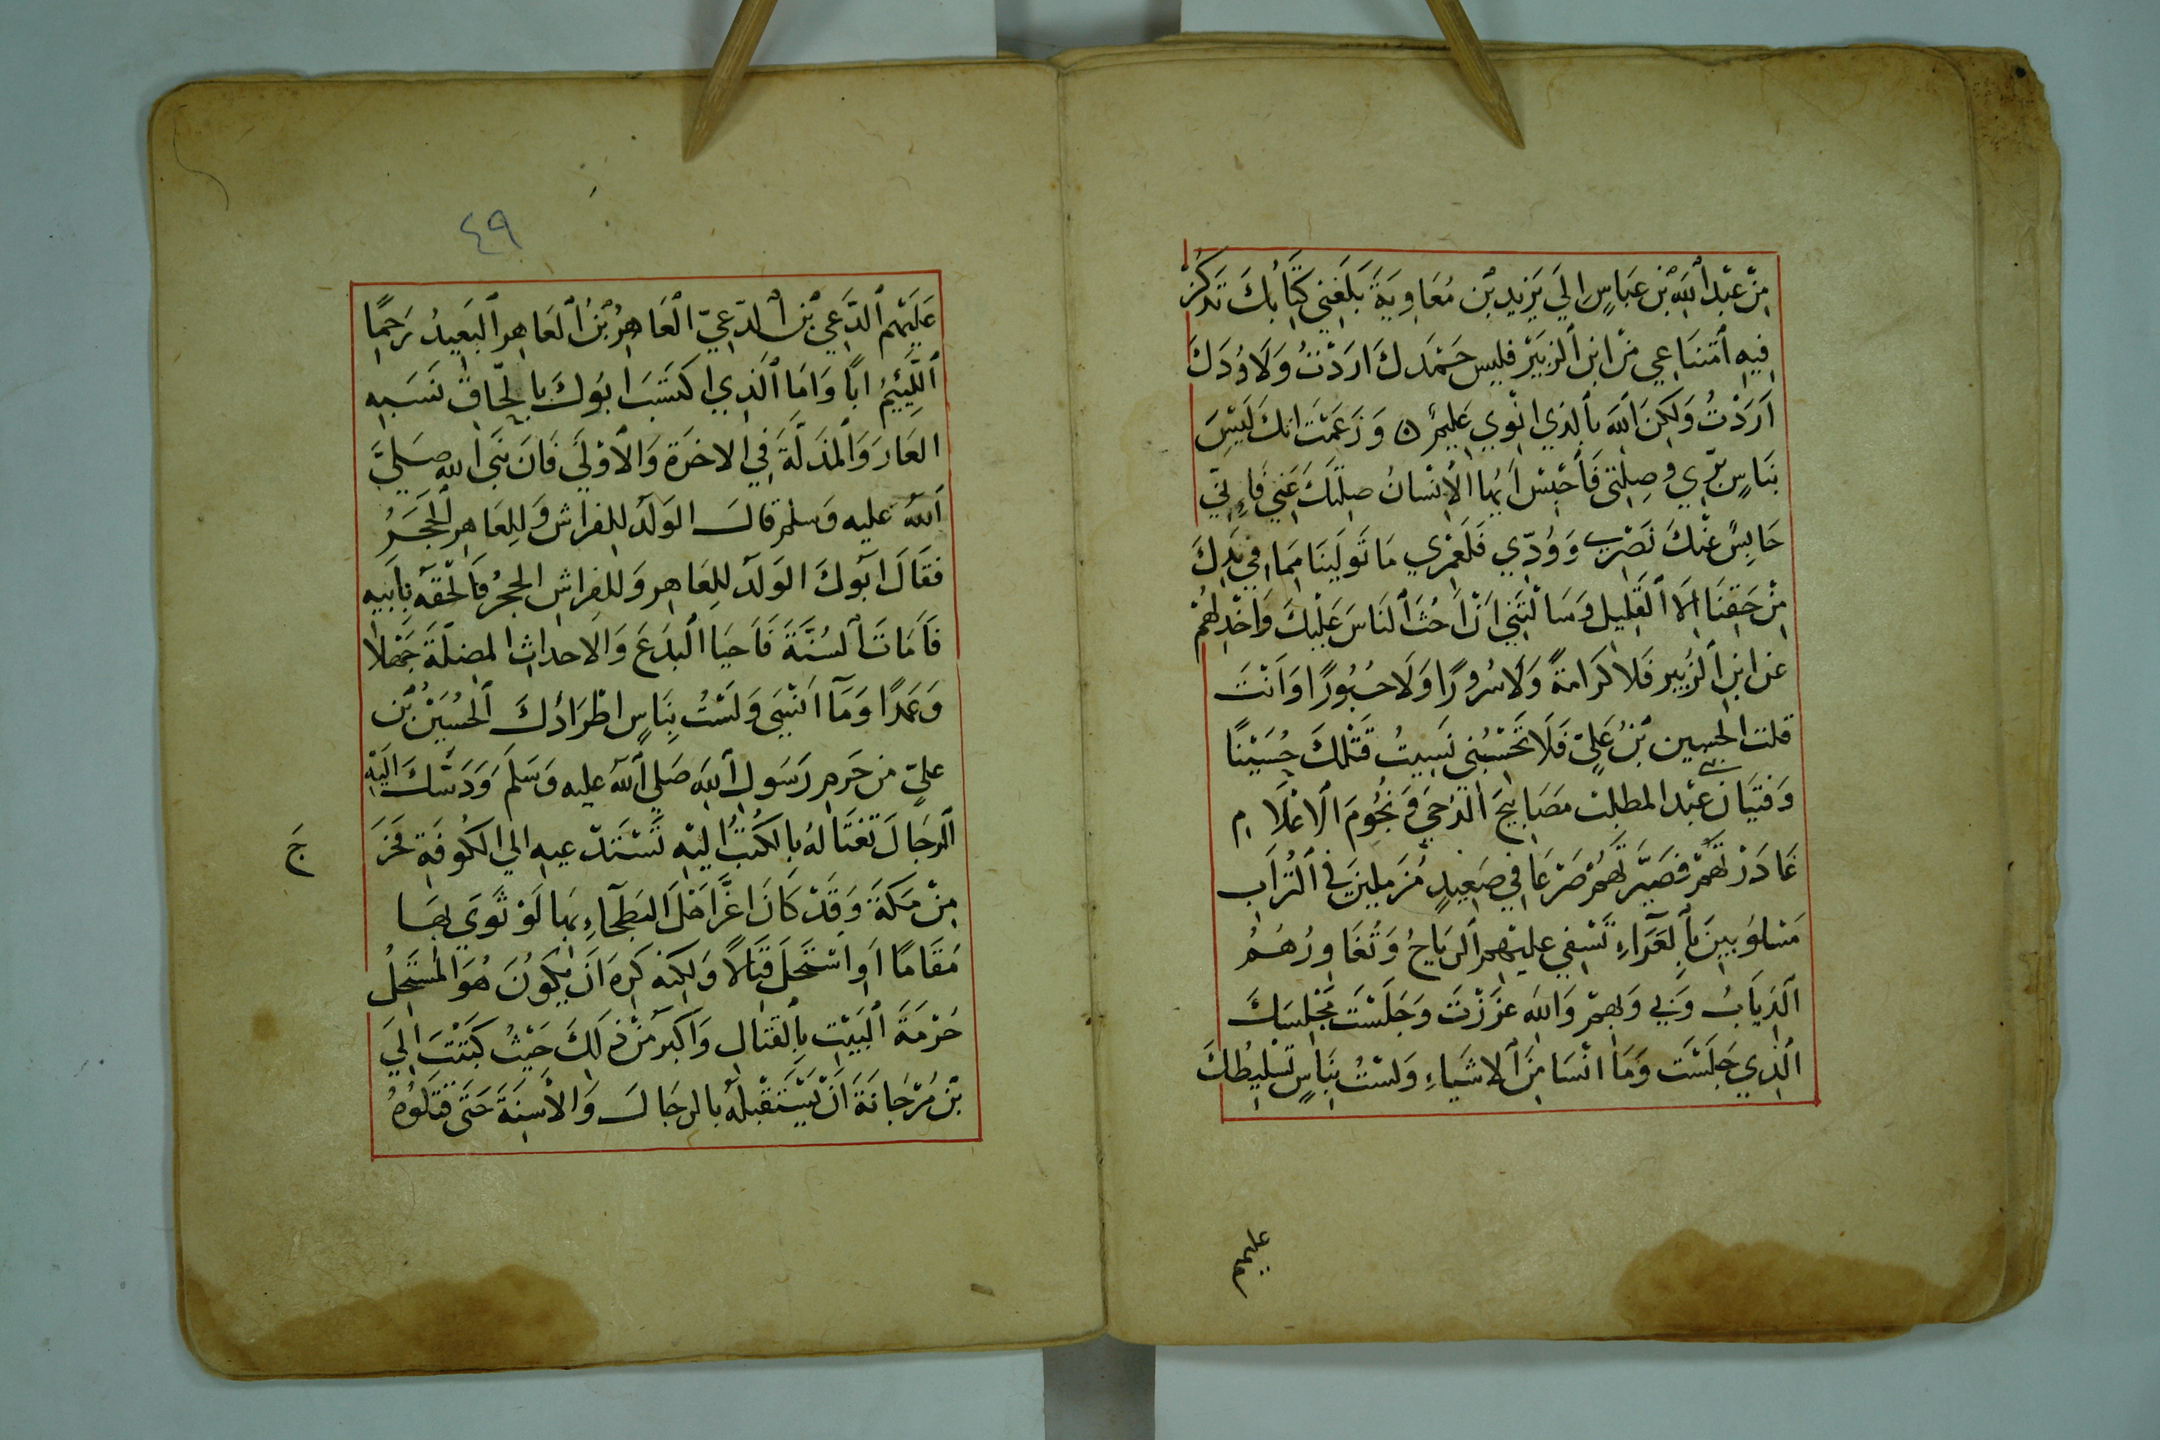 مِنْ عَبْدِ ٱللهِ بْنِ عَبَاسٍ اِلَي يَزِيد بْن مُعَاوِيَةَ بَلَغَنِي كِتَابُكَ تَذكُرُ
فِيهِ ٱمتنَاعِي مِنْ ابن ٱلزبَيْر فليس حَمْدكَ ارَدْتُ وَلَا وُدَكَ
اَرَدْتُ وَلَكِنَ ٱللَّهَ بالذي انْوِي عَلِيمٌ ن وَ زَعَمْتَ انكَ لَيْسَ
بنَاسٍ بِرِّي وصِلَتي فَاَحْبِسْ اَيها الْاِنْسَانُ صِلَتَكَ عَنِي فَاِنِّي
حَابِسٌ عَنْكَ نَصْرِي وَوُدّي فَلَعَمْرِي مَا تَولَينَا مِمَا فِي يَدِكَ
مِنْ حَقِنَا اِلا ٱلقَلِيل وَسَالْتَنِي اَنْ اَحُثَ ٱلنَاسَ عَلَيْكَ وَاخْذِلهُمْ
عَن ابنِ ٱلزُبَيرِ فَلا كَرَامَةً وَلَا سُرُورًا وَلَا حُبُورًا وَاَنْتَ
قلت الحسين بْنُ عَلِيّ فَلَا تَحْسَبُني نَسِيتُ قَتْلكَ حُسَيْنًا
وَفتيَان بني عَبْد المطلب مَصَابِيحَ الدُجَي وَ نجُومَ الْاعْلَامِ
غَادَرْتَهُمْ فصَيَّرتَهُمْ صَرْعَا فِي صَعِيدٍ مُزَمِلِينَ فِي ٱلتُرَاب
مَسْلوُبِينَ بِالْعَرَاءِ تَسْفي عليهم ٱلرِيَاحُ وَتُغَاوِرُهُمُ
ٱلذِيَابُ وَبِي وَبِهِمْ وَاللهِ عَزَزْتَ وَجَلَسْتَ مَجْلِسَكَ
ٱلذِي جَلَسْتَ وَمَا انْسَا مِنَ ٱلاشيَاءِ وَلسْتُ بِنَاسٍ تَسْلِيطكَ
عليهم
٤٩
عَلَيْهِم ٱلدَّعِي بْن ٱلدّعيّ ٱلعَاهِرُ بْنُ ٱلعَاهِر ٱلبَعِيدُ رَحِمًا
ٱللَّئِيمُ ابًا وَامَا ٱلَّذِي اكتَسَبَ ابُوكَ بِاِلحَاقِ نَسَبِهِ
العَارَ وَٱلمَذَلَّةَ فِي الاخرَةِ وَٱلاُوْلَي فَانَ نَبيَ اللهِ صَلَي
ٱللهُ عليه وَسلم قالَ الوَلَدُ للِفرَاش وَلِلعَاهِر ٱلحَجَرُ
فَقَالَ ابُوكَ الوَلَدُ لِلعَاهِر وَللِفِرَاشِ الحجُر فَالحَقهُ بِاَبيهِ
فَاَمَاتَ ٱلسُنَّةَ فَاَحيَا ٱلبِدَعَ وَالاحداث المضِلَّةَ جَهْلاً
وَعَمدًا وَمَآ اَنسَي وَلَسْتُ بِنَاسٍ اطْرَادَكَ ٱلحُسَيْنَ بْنَ
عليّ من حَرمِ رَسُولِ ٱللهِ صَلي ٱللهُ عليه وَسَلَمَ وَدَسَّكَ اِلَيْهِ
ٱلرجَالَ تَغتَالهُ بِالكُتُبُ اِليْهِ تَسْتَدْعِيهِ الي الكُوفَهِ فَخَرَ
جَ
مِنْ مَكَةَ وَقَدْ كَانَ اعَزَّ اهْلَ البَطحَآءِ بهَا لَوْ ثَوَي بِهَا
مُقَامًا اَوِ اسْتَحَلَ قِتَالًا وَلكِنهُ كَرِهَ اَنْ يَكَوُنَ هُوَ المُسْتَحِلُ
حُرْمَةَ ٱلبَيْتِ بِٱلقتَالِ وَاَكبَرُ مِنْ ذَلِكَ حَيْثُ كَتَبْتَ اِلَيَ
بْن مَرْجَانَةَ اَنْ يَسْتَقْبِلَهُ بالرِجَالَ وَالاَسِنَةَ حَتَى قَتَلُوُهُ